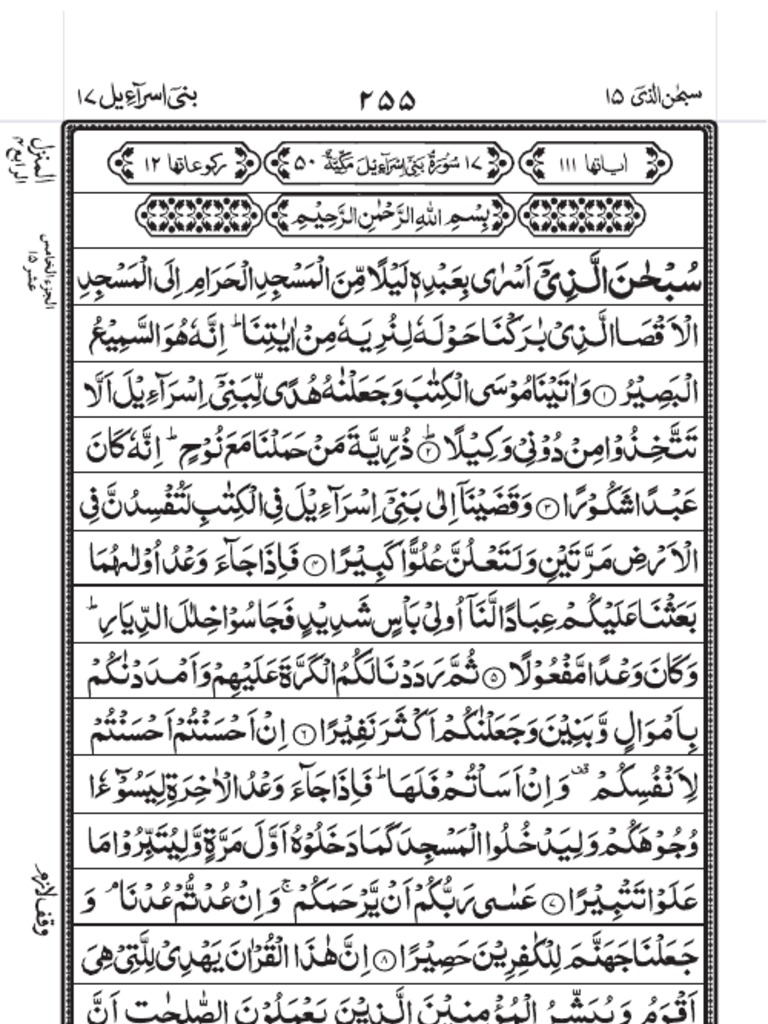 سبحٰن الذیٓ ۱۵
۲۵۵
بنیٓ اسرآءیل ۱۷
اٰیاتها ۱۱۱
۱۷ سُوْرَةُ بَنِیْٓ اِسْرَآءِیْلَ مَكِّیَّةٌ ۵۰
رکوعاتها ۱۲
بِسْمِ اللهِ الرَّحْمٰنِ الرَّحِیْمِ
المنزل الرابع ۴
الجزء الخامس عشر ۱۵
سُبْحٰنَ الَّذِیْۤ اَسْرٰی بِعَبْدِهٖ لَیْلًا مِّنَ الْمَسْجِدِ الْحَرَامِ اِلَی الْمَسْجِدِ
الْاَقْصَا الَّذِیْ بٰرَكْنَا حَوْلَهٗ لِنُرِیَهٗ مِنْ اٰیٰتِنَا ؕ اِنَّهٗ هُوَ السَّمِیْعُ
الْبَصِیْرُ ﴿۱﴾ وَ اٰتَیْنَا مُوْسَی الْكِتٰبَ وَ جَعَلْنٰهُ هُدًی لِّبَنِیْۤ اِسْرَآءِیْلَ اَلَّا
تَتَّخِذُوْا مِنْ دُوْنِیْ وَكِیْلًا ﴿۲﴾ؕ ذُرِّیَّةَ مَنْ حَمَلْنَا مَعَ نُوْحٍ ؕ اِنَّهٗ كَانَ
عَبْدًا شَكُوْرًا ﴿۳﴾ وَ قَضَیْنَاۤ اِلٰی بَنِیْۤ اِسْرَآءِیْلَ فِی الْكِتٰبِ لَتُفْسِدُنَّ فِی
الْاَرْضِ مَرَّتَیْنِ وَ لَتَعْلُنَّ عُلُوًّا كَبِیْرًا ﴿۴﴾ فَاِذَا جَآءَ وَعْدُ اُوْلٰىهُمَا
بَعَثْنَا عَلَیْكُمْ عِبَادًا لَّنَاۤ اُولِیْ بَاْسٍ شَدِیْدٍ فَجَاسُوْا خِلٰلَ الدِّیَارِ ؕ
وَ كَانَ وَعْدًا مَّفْعُوْلًا ﴿۵﴾ ثُمَّ رَدَدْنَا لَكُمُ الْكَرَّةَ عَلَیْهِمْ وَ اَمْدَدْنٰكُمْ
بِاَمْوَالٍ وَّ بَنِیْنَ وَ جَعَلْنٰكُمْ اَكْثَرَ نَفِیْرًا ﴿۶﴾ اِنْ اَحْسَنْتُمْ اَحْسَنْتُمْ
لِاَنْفُسِكُمْ ۫ وَ اِنْ اَسَاْتُمْ فَلَهَا ؕ فَاِذَا جَآءَ وَعْدُ الْاٰخِرَةِ لِیَسُوْٓءٗا
وُجُوْهَكُمْ وَ لِیَدْخُلُوا الْمَسْجِدَ كَمَا دَخَلُوْهُ اَوَّلَ مَرَّةٍ وَّ لِیُتَبِّرُوْا مَا
وقف لازم
عَلَوْا تَتْبِیْرًا ﴿۷﴾ عَسٰی رَبُّكُمْ اَنْ یَّرْحَمَكُمْ ۚ وَ اِنْ عُدْتُّمْ عُدْنَا ۘ وَ
جَعَلْنَا جَهَنَّمَ لِلْكٰفِرِیْنَ حَصِیْرًا ﴿۸﴾ اِنَّ هٰذَا الْقُرْاٰنَ یَهْدِیْ لِلَّتِیْ هِیَ
اَقْوَمُ وَ یُبَشِّرُ الْمُؤْمِنِیْنَ الَّذِیْنَ یَعْمَلُوْنَ الصّٰلِحٰتِ اَنَّ